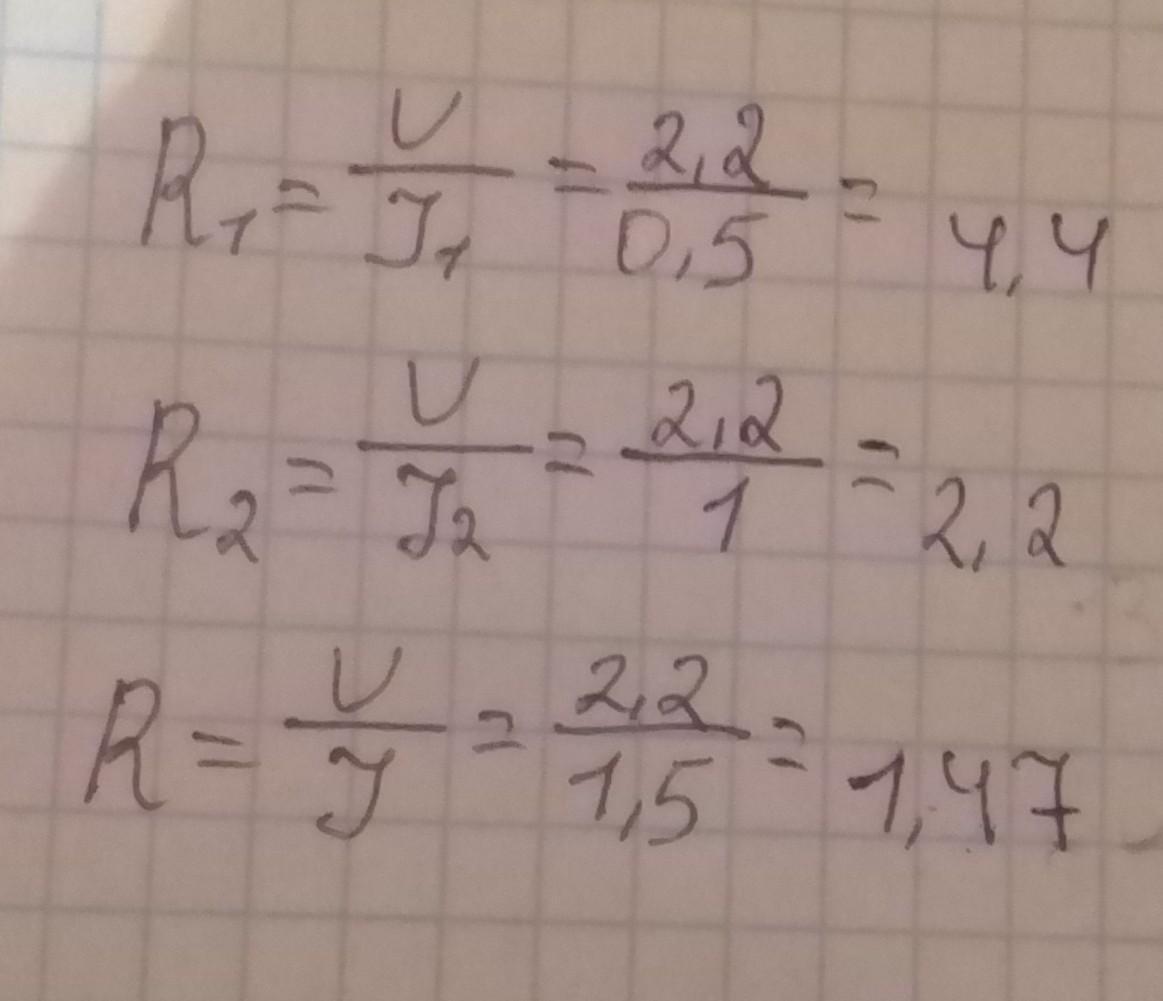 R₁ = U/I₁ = 2,2/0,5 = 4,4
R₂ = U/I₂ = 2,2/1 = 2,2
R = U/I = 2,2/1,5 = 1,47